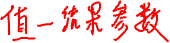 值一结果参数